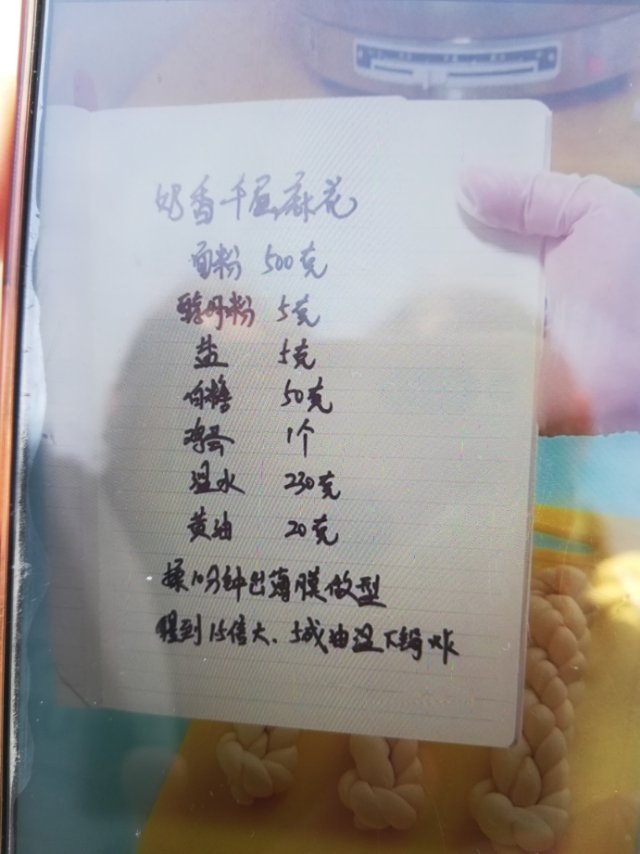 奶香千层麻花
面粉 500克
酵母粉 5克
盐 5克
白糖 50克
鸡蛋 1个
温水 230克
黄油 20克
揉10分钟出薄膜做型
醒到1.5倍大、5成油温下锅炸